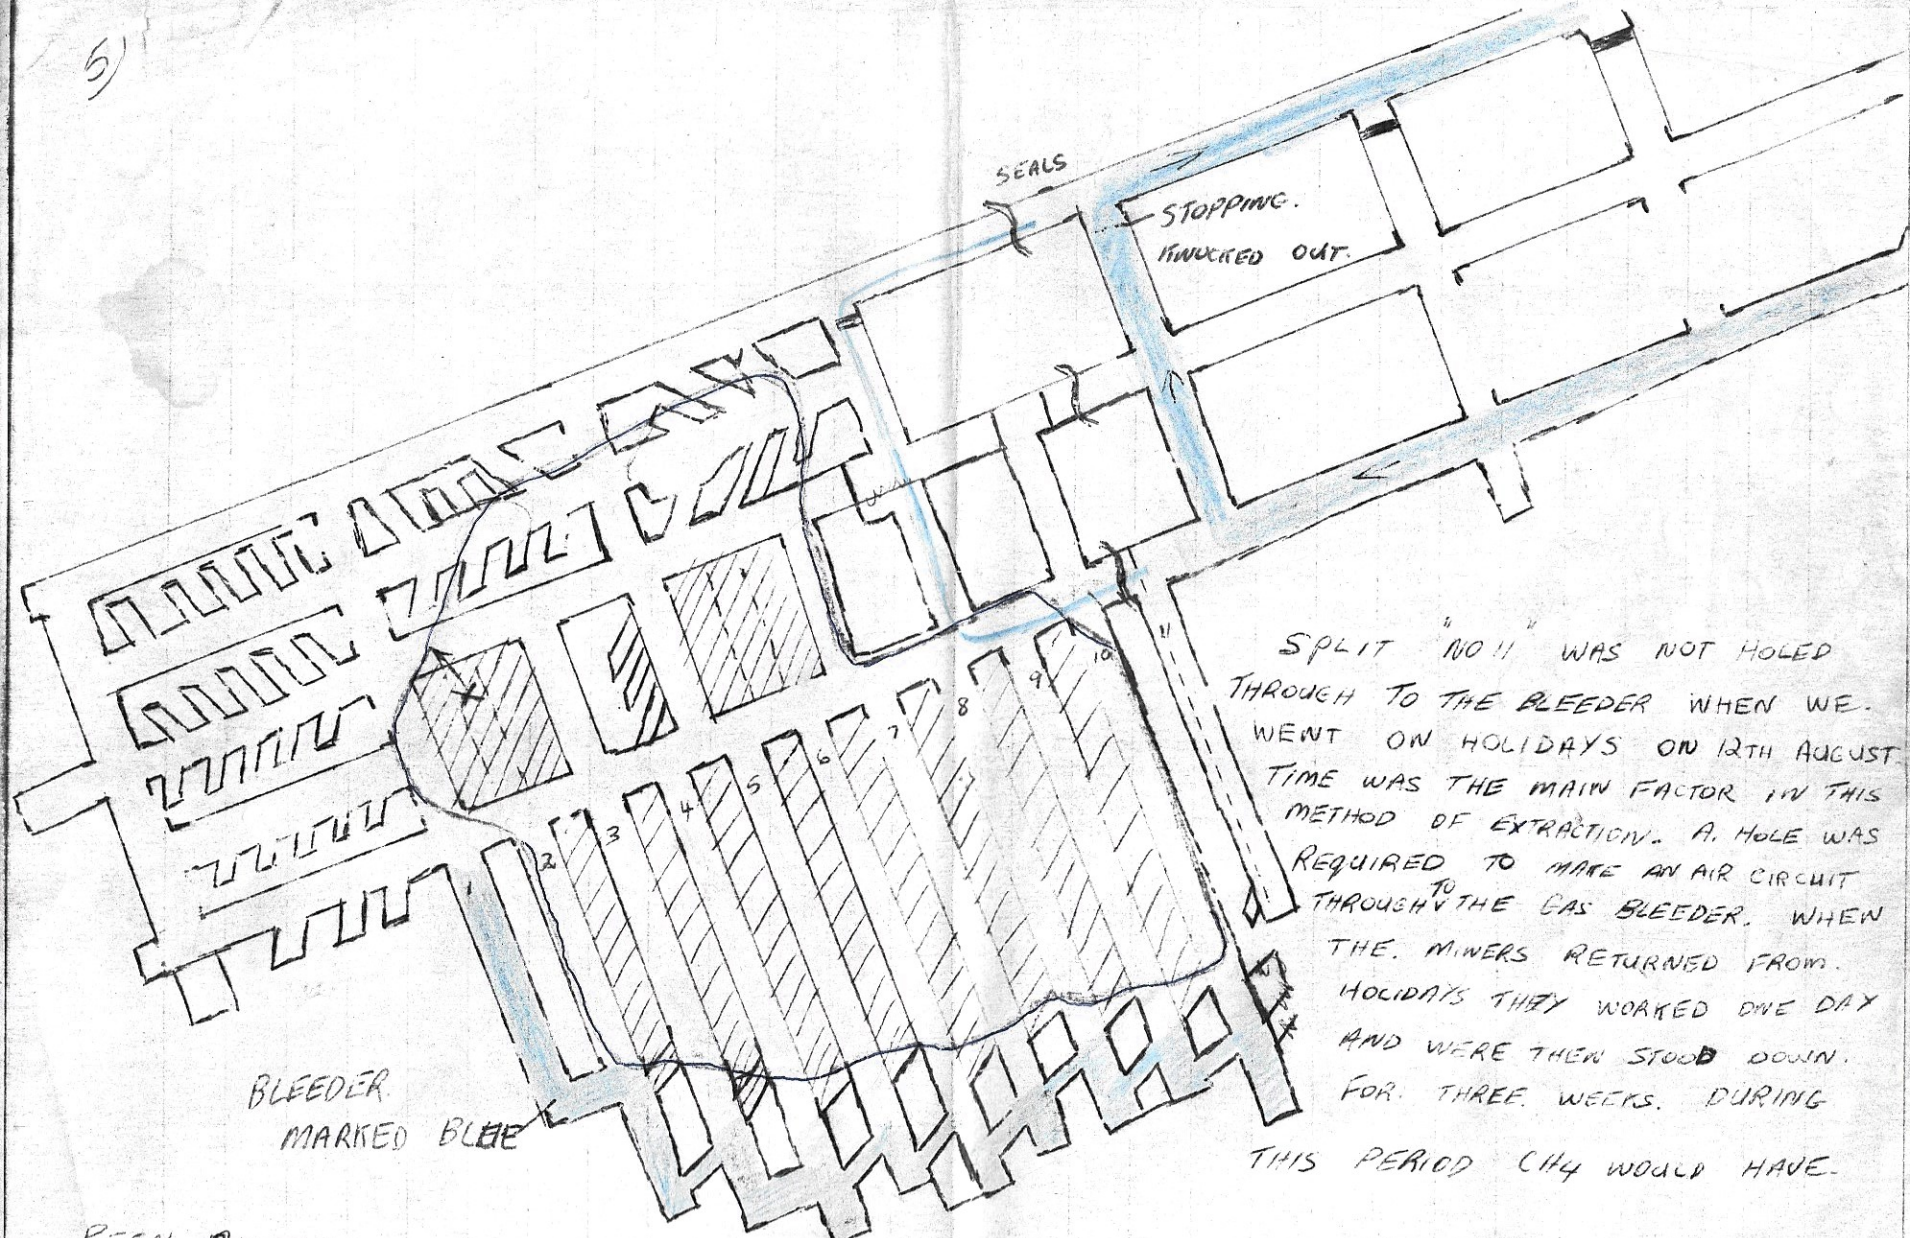 5)
SEALS
STOPPING.
KNOCKED OUT.
SPLIT "NO 11" WAS NOT HOLED
THROUGH TO THE BLEEDER WHEN WE.
WENT ON HOLIDAYS ON 12TH AUGUST.
TIME WAS THE MAIN FACTOR IN THIS
METHOD OF EXTRACTION. A. HOLE WAS
REQUIRED TO MAKE AN AIR CIRCUIT
THROUGH TO THE GAS BLEEDER. WHEN
THE. MINERS RETURNED FROM.
HOLIDAYS THEY WORKED ONE DAY
AND WERE THEN STOOD DOWN.
FOR. THREE. WEEKS. DURING
THIS PERIOD CH4 WOULD HAVE.
X
2
3
4
5
6
7
8
9
10
11
BLEEDER.
MARKED BLUE
BEEN